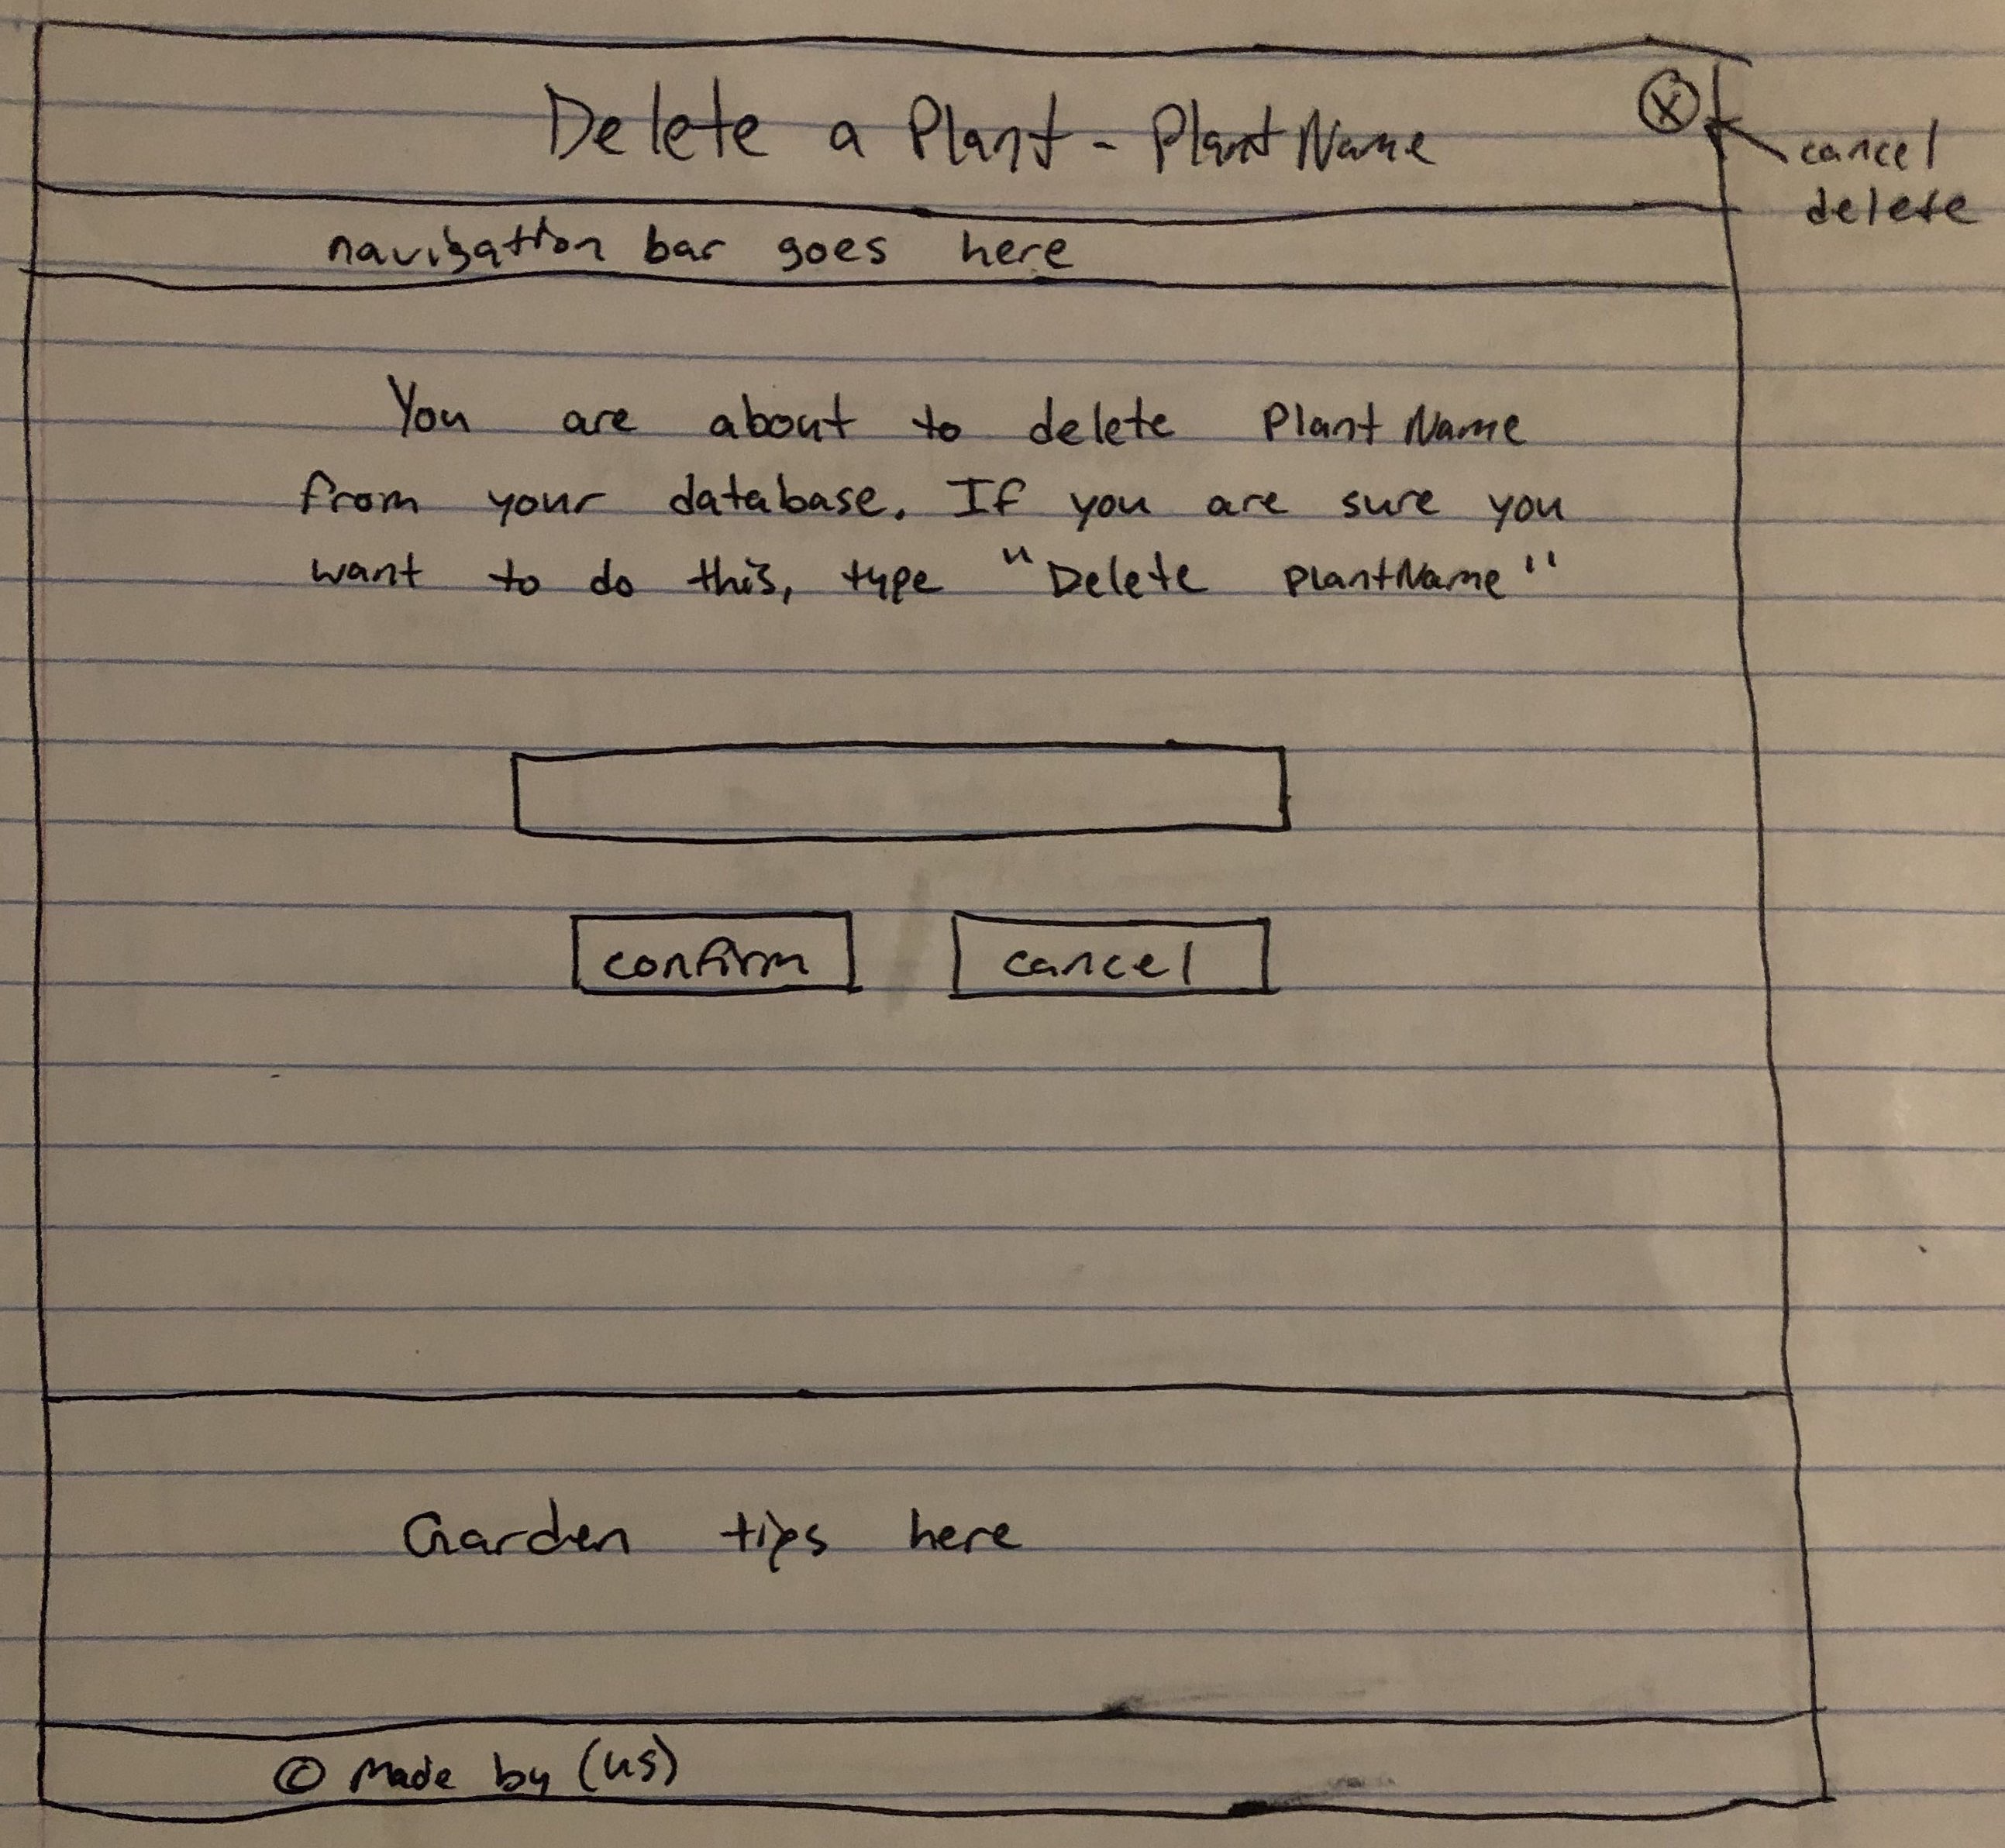 Delete a Plant - PlantName
X
cancel
delete
navigation bar goes here
You are about to delete PlantName
from your database. If you are sure you
want to do this, type "Delete plantName"
confirm
cancel
Garden tips here
© Made by (us)